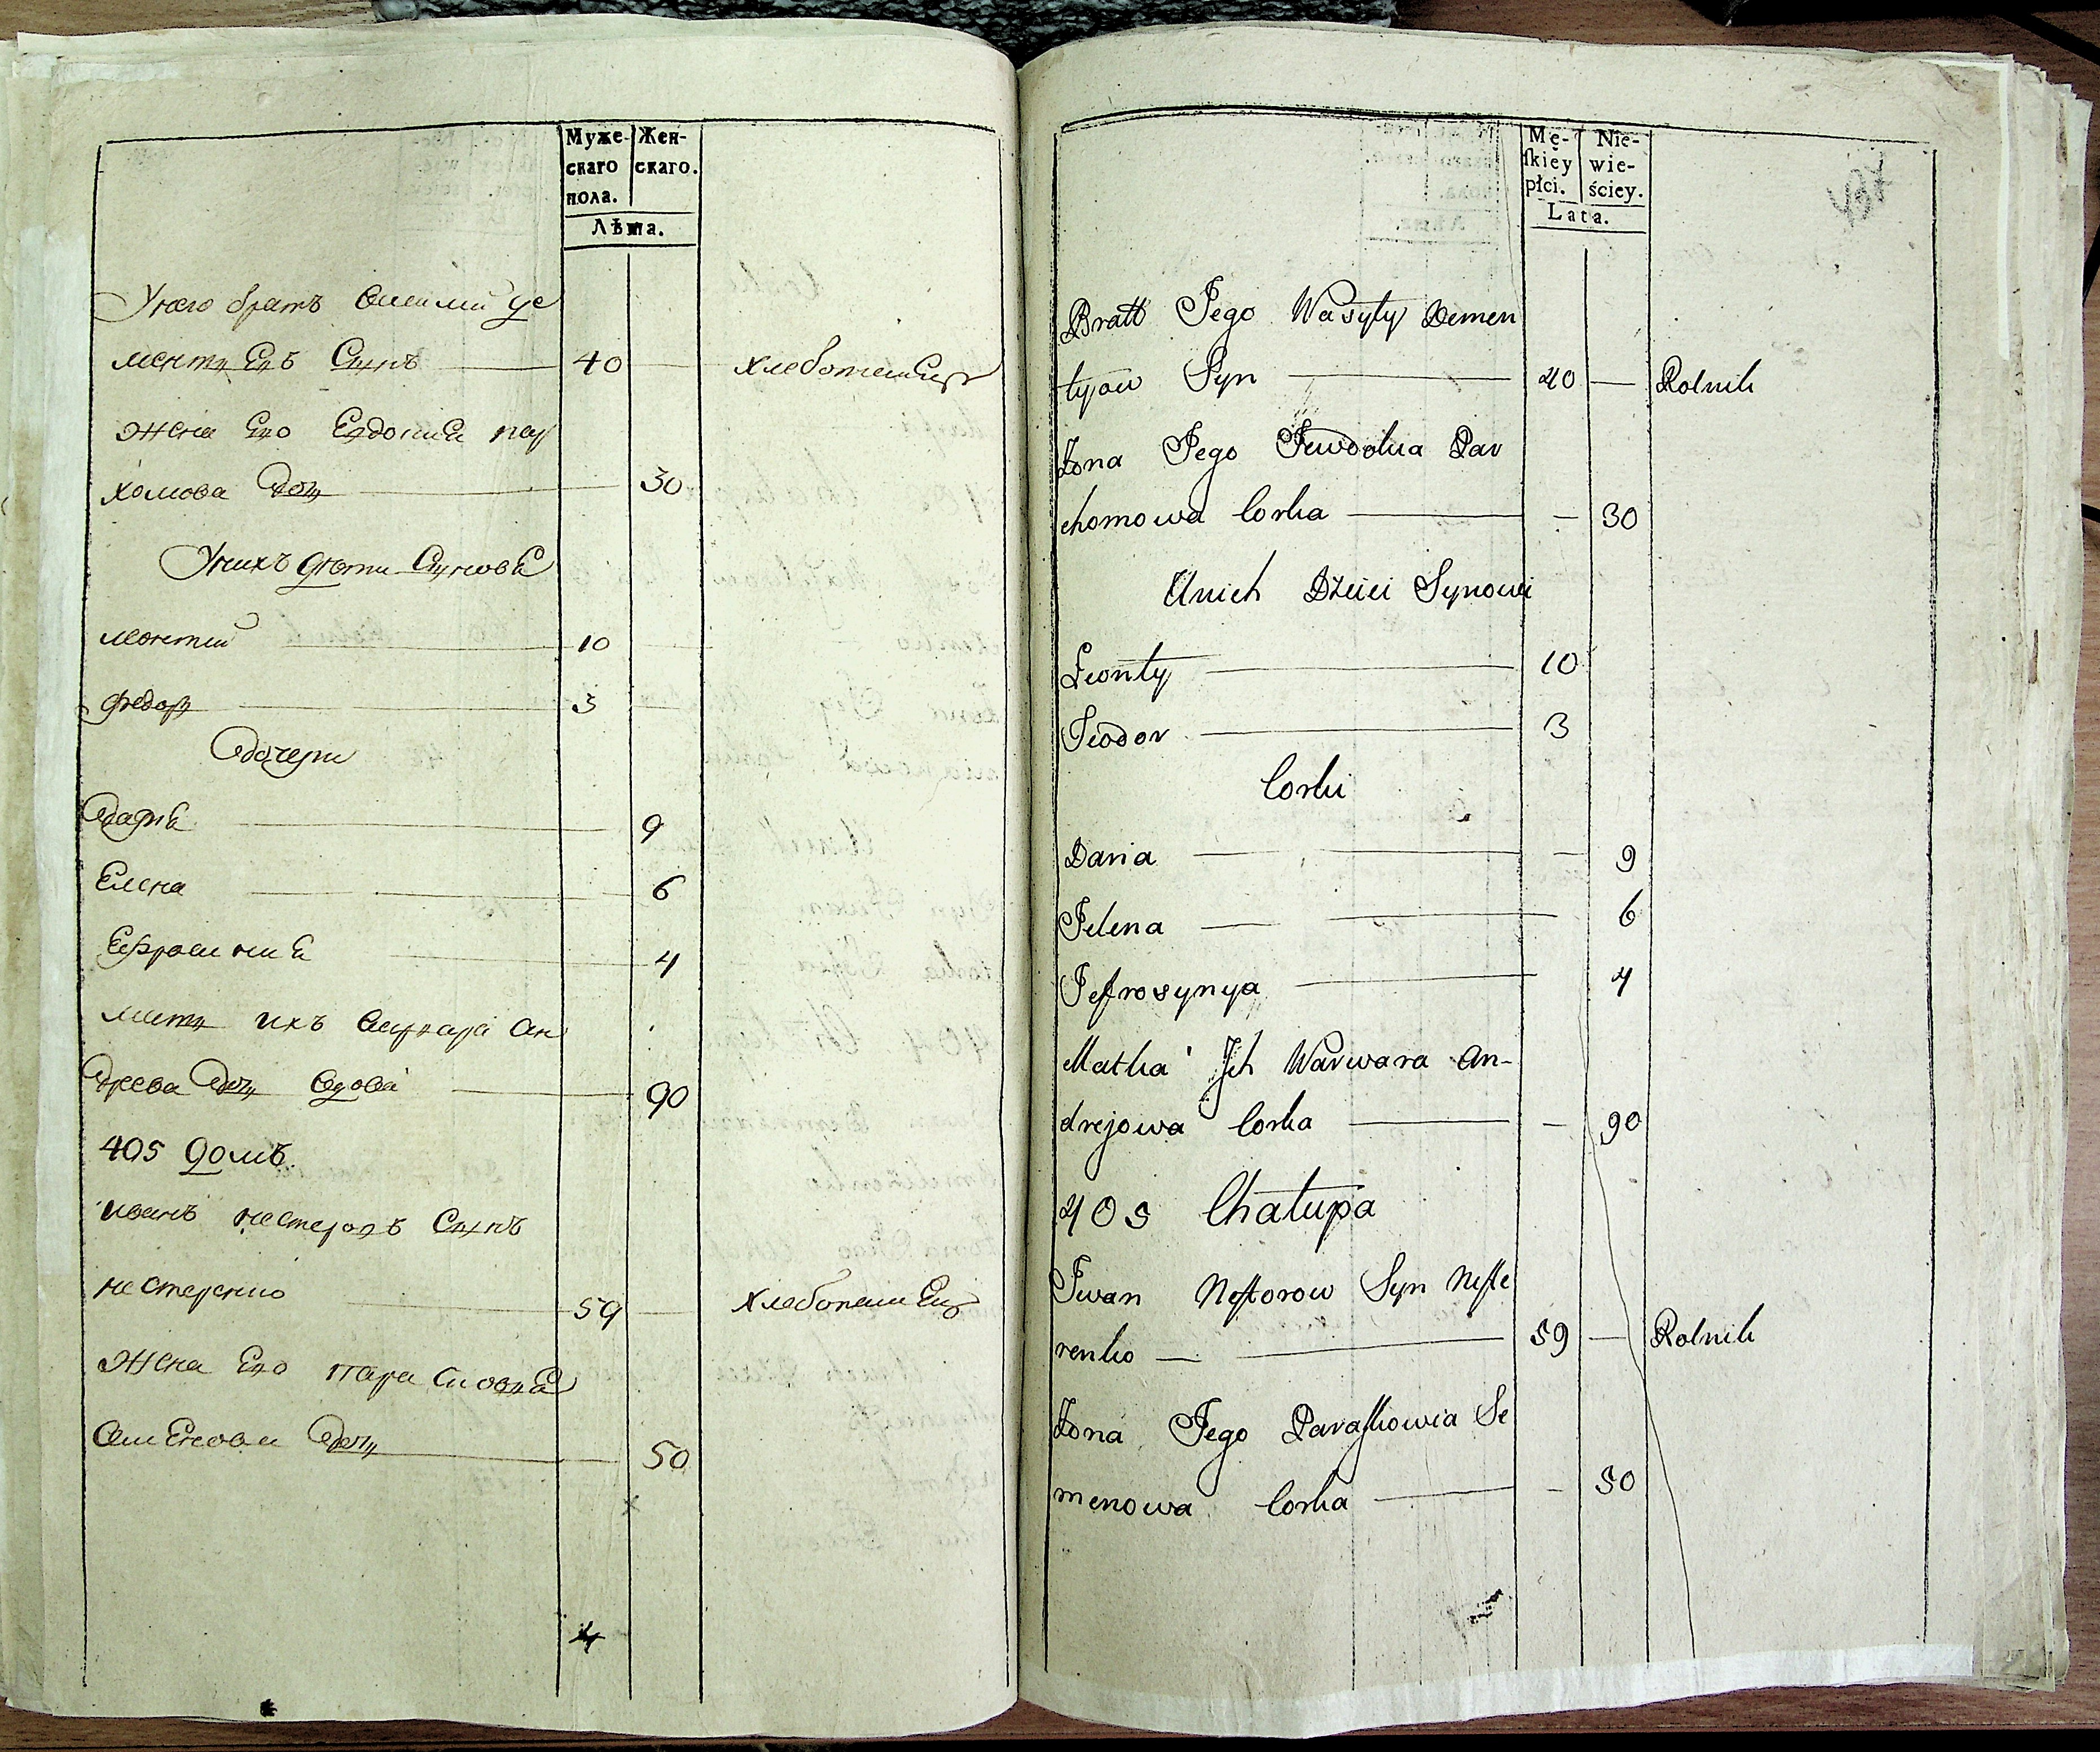 Муже-
скаго
пола.
Жен-
скаго.
Лѣта.
Унего братъ Василий де
ментиевъ Сынъ — 40 — хлебопашецъ
жена Его Евдокия пар
хомова дочь — 30
Унихъ дѣти Сыновья
леонтий — 10
федоръ — 3
дочери
дария — 9
Елена — 6
Ефросиния — 4
мать ихъ варвара ан
дреева дочь вдова — 90
405 домъ
иванъ нестеровъ Сынъ
нестеренко — 59 — хлебопашецъ
жена Его парасковия
семенова дочь — 50
Mę-
skiey
płci.
Nie-
wie-
ściey.
Lata.
Bratt Jego Wasyly Demen
tyow Syn — 40 — Rolnik
Żona Jego Jewdokia Par
chomowa Corka — 30
Unich Dzieci Synowi
Leonty — 10
Teodor — 3
Corki
Daria — 9
Jelena — 6
Jefrosynya — 4
Matka Jch Warwara An-
drejowa Corka — 90
405 Chatupa
Iwan Nestorow Syn Neste
renko — 59 — Rolnik
Żona Jego Paraskowia Se
menowa Corka — 50